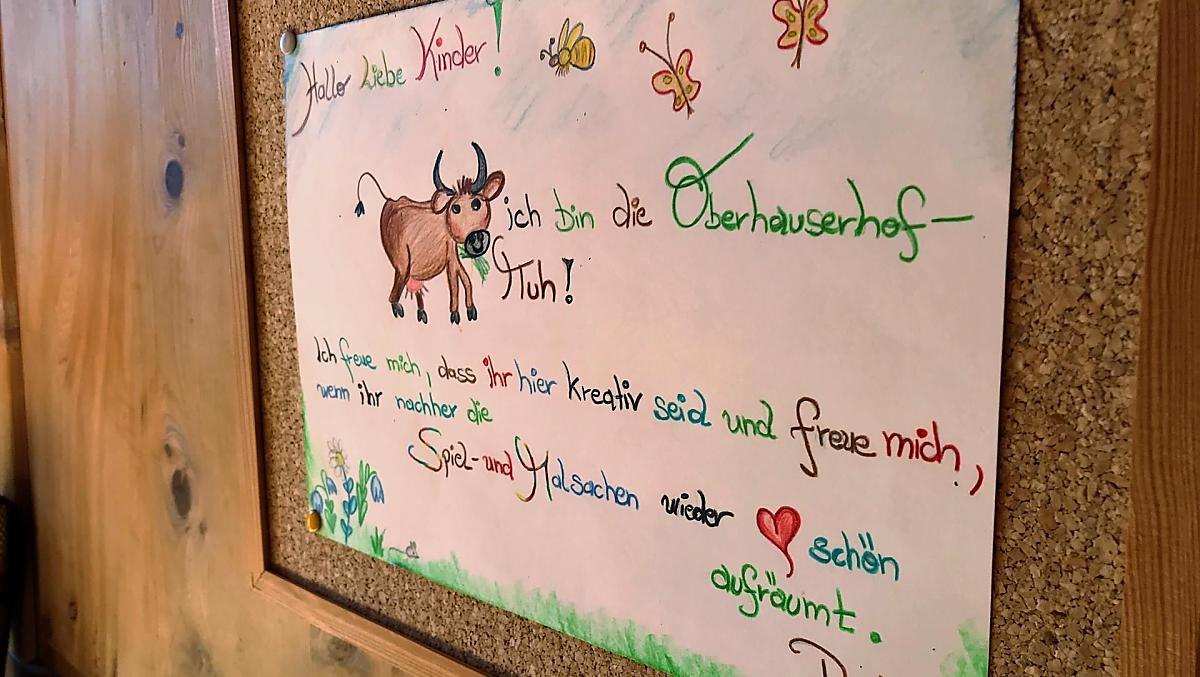 Hallo Liebe Kinder!
ich bin die Oberhauserhof-
Muh!
Ich freue mich, dass ihr hier kreativ seid und freue mich,
wenn ihr nachher die
Spiel- und Malsachen wieder schön
aufräumt.